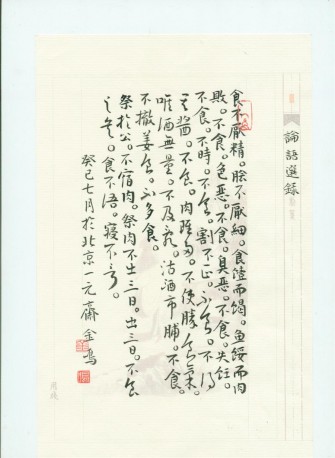 論語選錄
食不厭精。膾不厭細。食饐而餲。魚餒而肉
敗。不食。色惡。不食。臭惡。不食。失飪。
不食。不時。不食。割不正。不食。不得
其醬。不食。肉雖多。不使勝食氣。
唯酒無量。不及亂。沽酒市脯。不食。
不撤姜食。不多食。
祭於公。不宿肉。祭肉不出三日。出三日。不食
之矣。食不語。寢不言。
癸巳七月於北京一元齋金